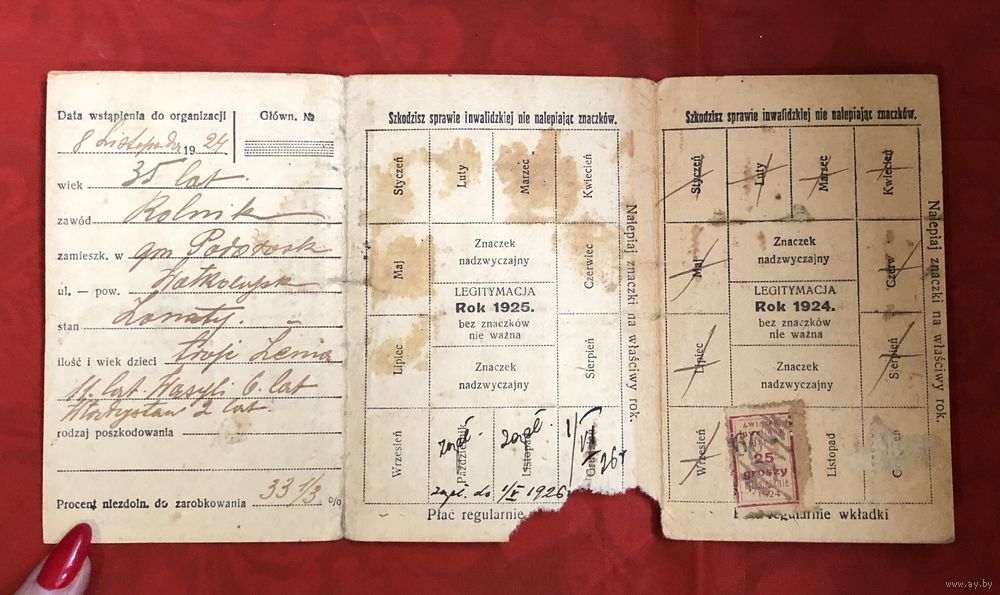 Data wstąpienia do organizacji
8 Listopada 1924
Główn. №
wiek 35 lat.
zawód Rolnik
zamieszk. w gm
ul. — pow.
stan Żonaty.
ilość i wiek dzieci troje
11 lat Wasyli 6 lat
Władysław 2 lat.
rodzaj poszkodowania
Procent niezdoln. do zarobkowania 33 1/3 o/o
Szkodzisz sprawie inwalidzkiej nie nalepiając znaczków.
Styczeń
Luty
Marzec
Kwiecień
Maj
Znaczek
nadzwyczajny
Czerwiec
LEGITYMACJA
Rok 1925.
bez znaczków
nie ważna
Lipiec
Znaczek
nadzwyczajny
Sierpień
Wrzesień
zapł.
Październik
zapł.
Listopad
zapł. do 1/V 1926
Nalepiaj znaczki na właściwy rok.
Płać regularnie
Szkodzisz sprawie inwalidzkiej nie nalepiając znaczków.
Styczeń
Luty
Marzec
Kwiecień
Maj
Znaczek
nadzwyczajny
Czerw
LEGITYMACJA
Rok 1924.
bez znaczków
nie ważna
Lipiec
Znaczek
nadzwyczajny
Sierpień
Wrzesień
25
groszy
1924
Listopad
Nalepiaj znaczki na właściwy rok.
regularnie wkładki
www.ay.by